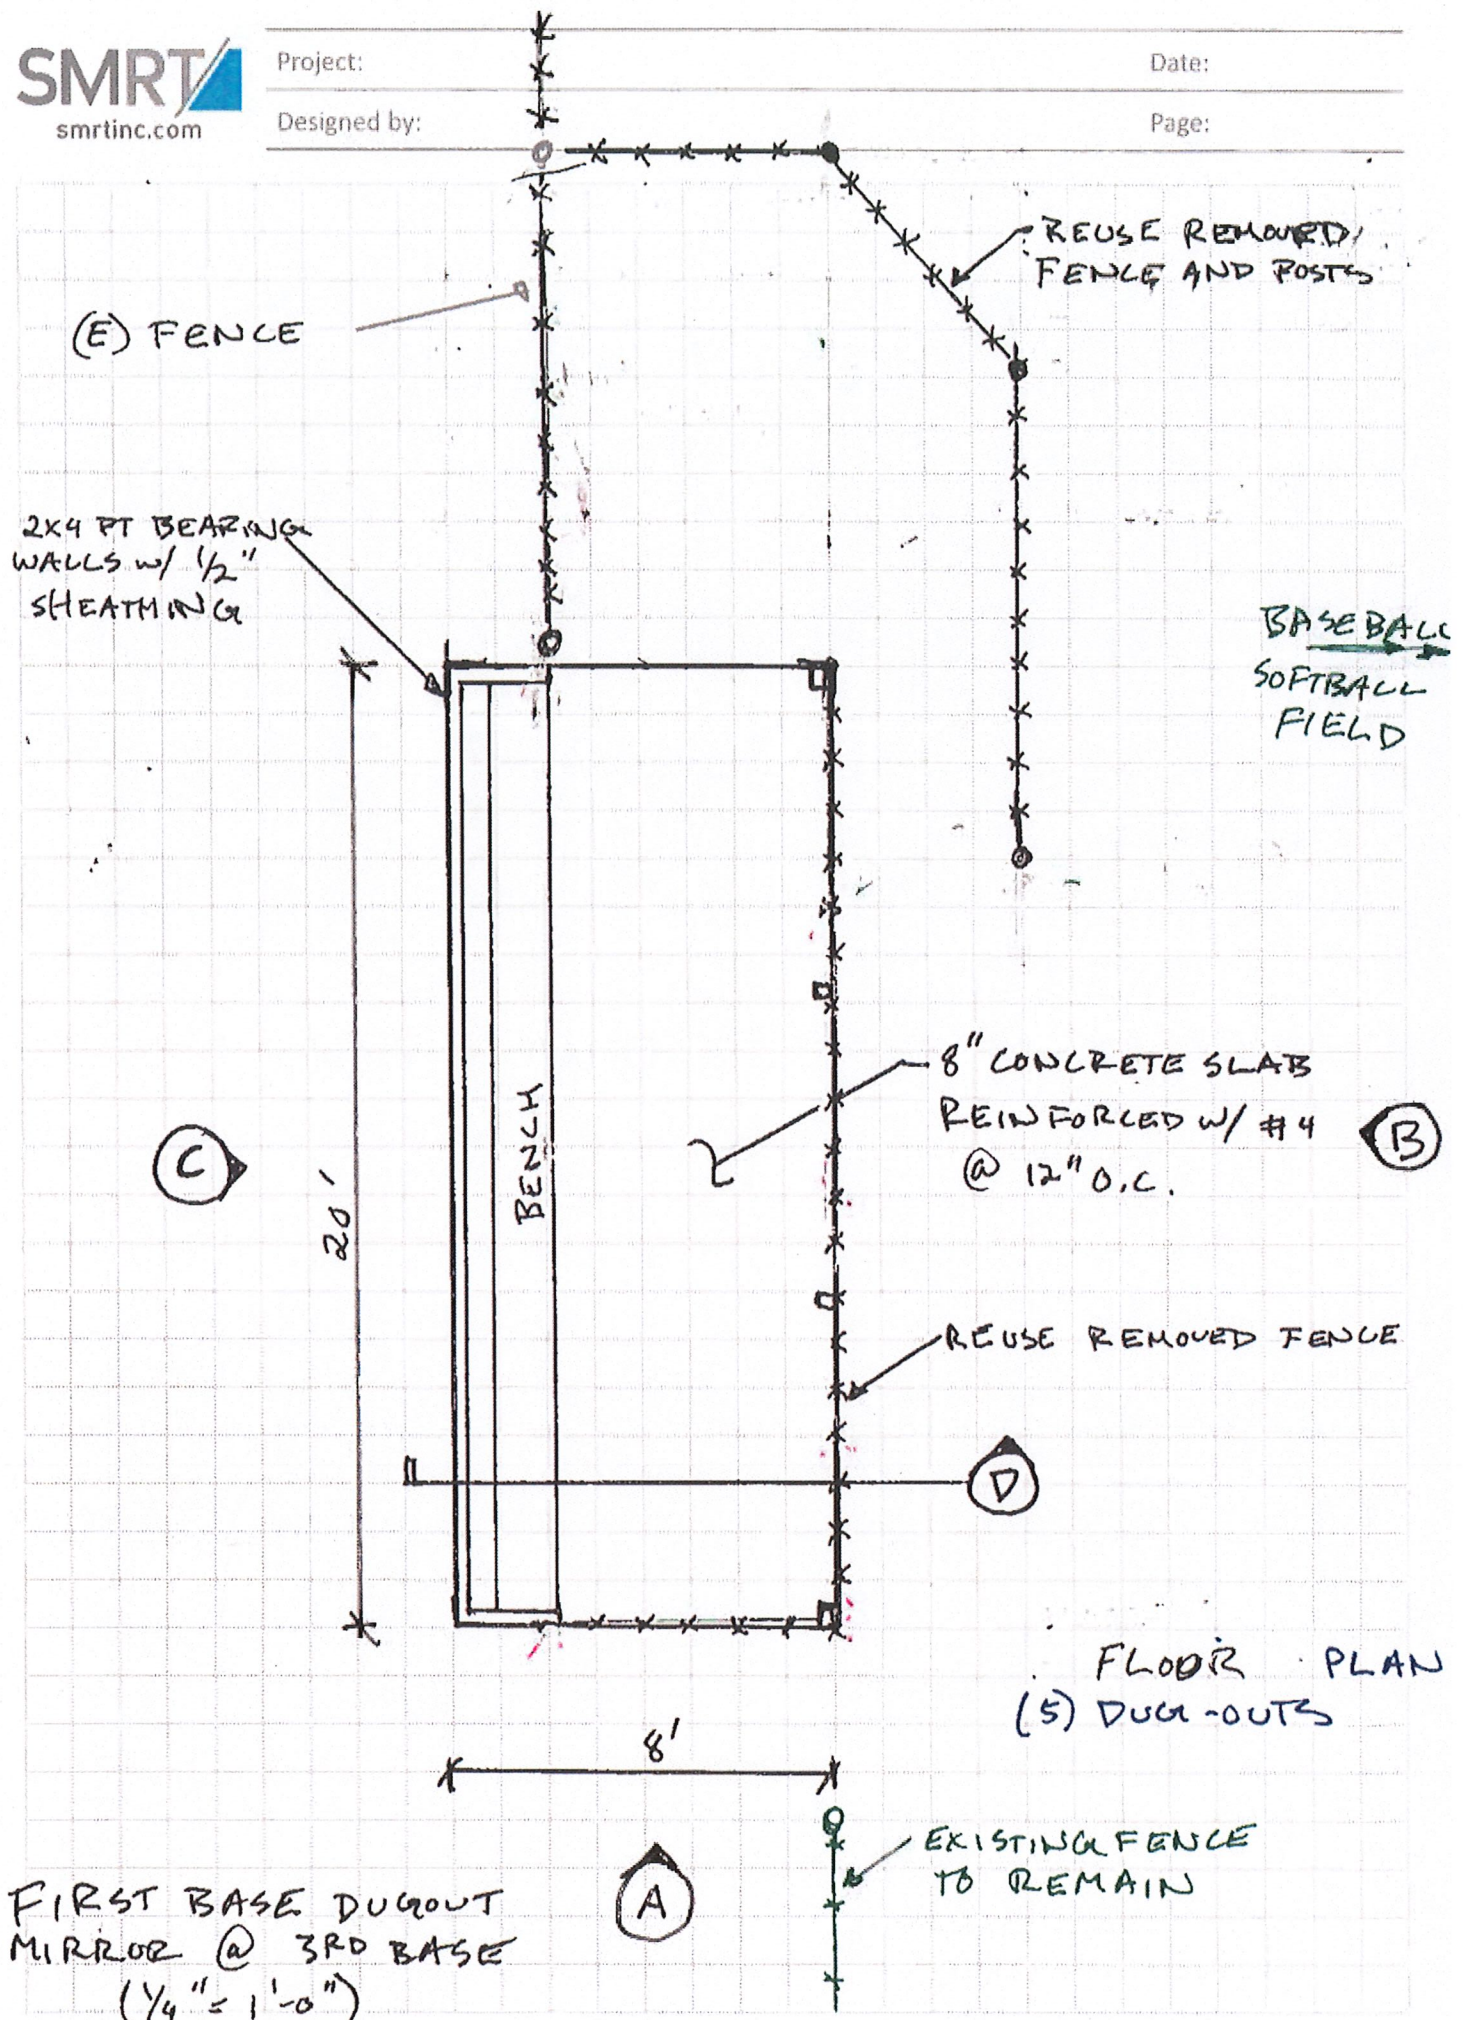 SMRT
smrtinc.com
Project:
Date:
Designed by:
Page:
REUSE REMOVED
FENCE AND POSTS
(E) FENCE
2X4 PT BEARING
WALLS W/ 1/2"
SHEATHING
BASEBALL
SOFTBALL
FIELD
BENCH
8" CONCRETE SLAB
REINFORCED W/ #4
@ 12" O.C.
B
C
20'
REUSE REMOVED FENCE
D
FLOOR PLAN
(5) DUG-OUTS
8'
EXISTING FENCE
TO REMAIN
A
FIRST BASE DUGOUT
MIRROR @ 3RD BASE
(1/4" = 1'-0")